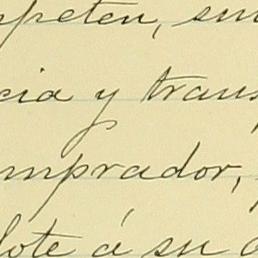 mpeten, sin
cia y trans
omprador,
lote á su